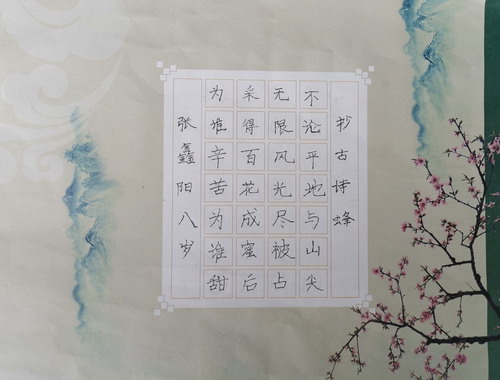 抄古诗蜂
不论平地与山尖
无限风光尽被占
采得百花成蜜后
为谁辛苦为谁甜
张鑫阳八岁